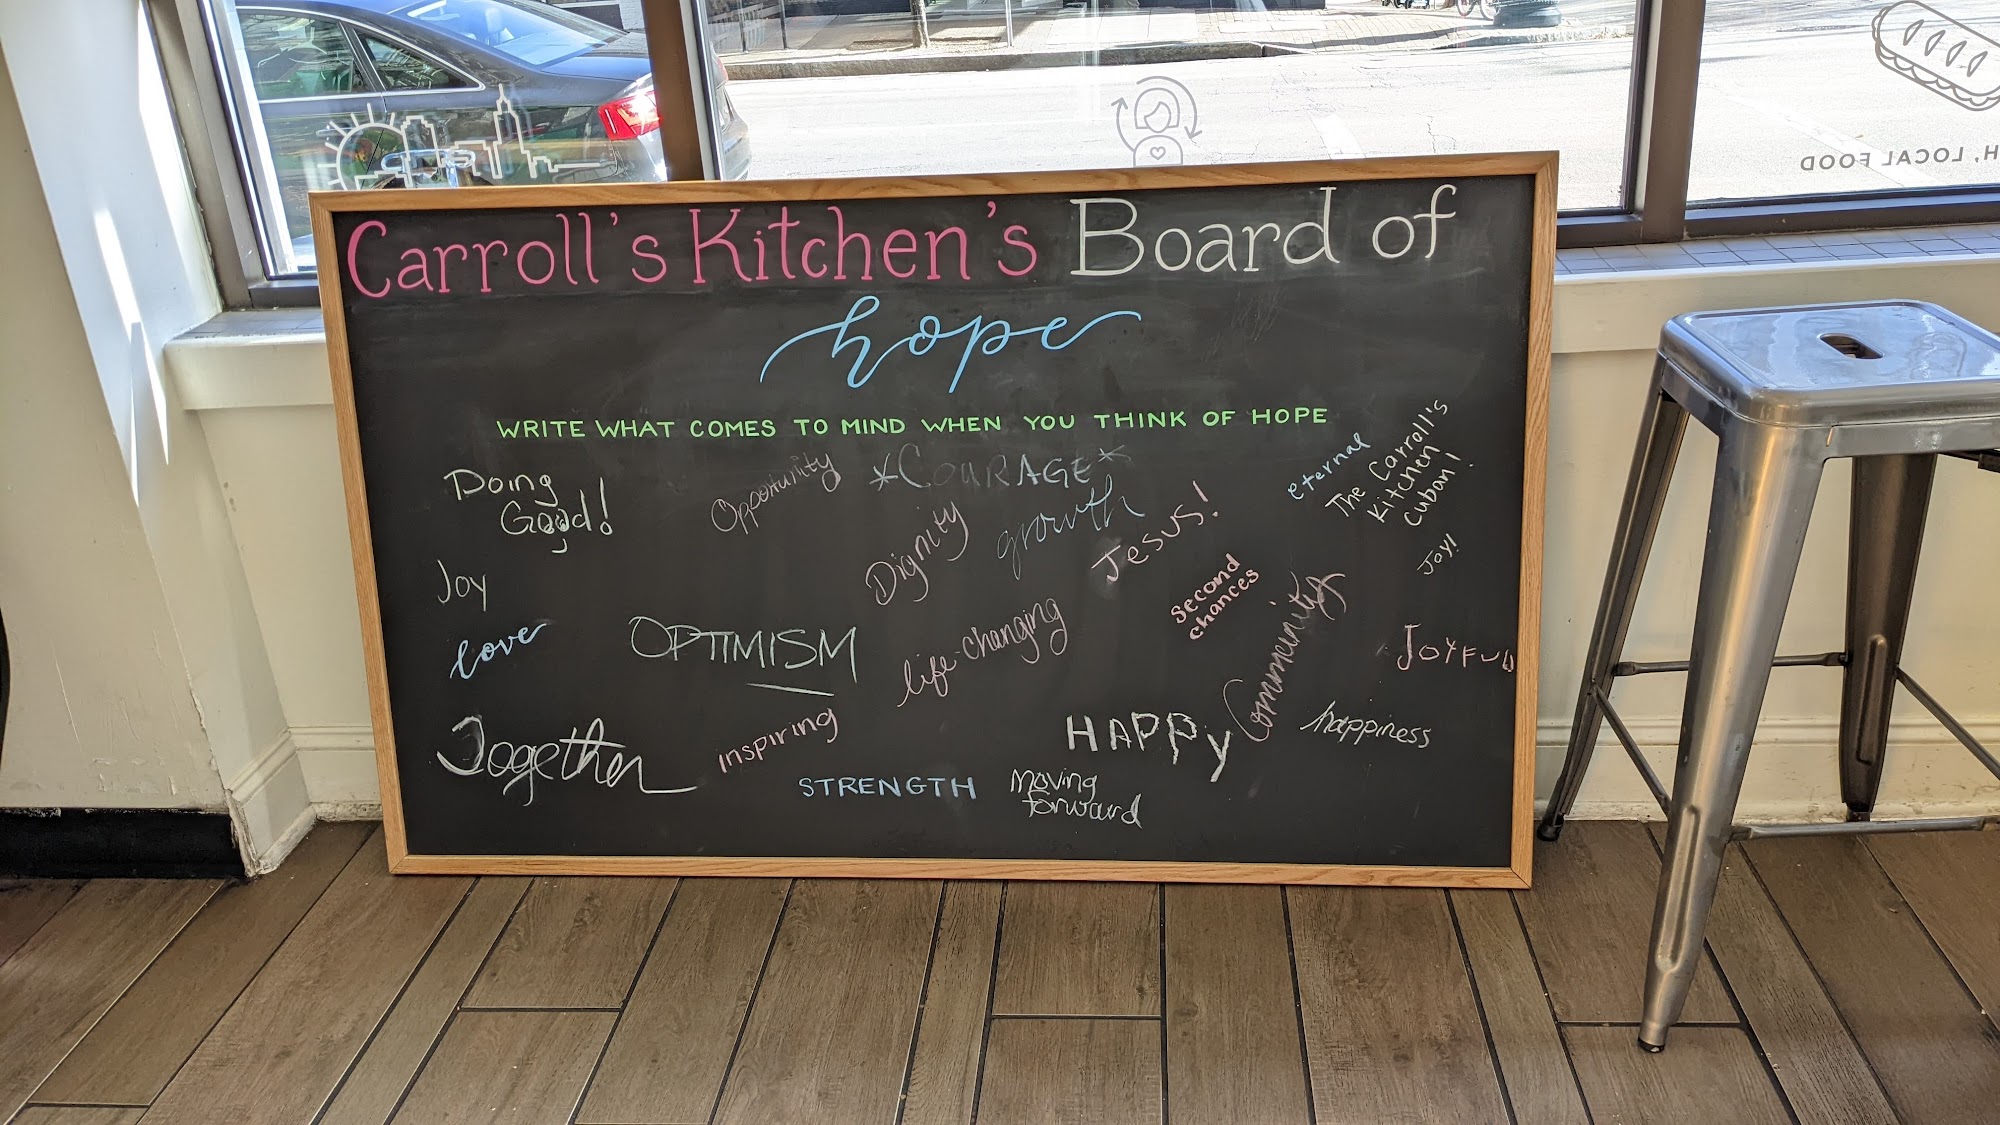 Carroll's Kitchen's Board of
hope
WRITE WHAT COMES TO MIND WHEN YOU THINK OF HOPE
Doing
Good!
Opportunity
*COURAGE*
eternal
The Carroll's
Kitchen
Cuban!
Dignity
growth
Jesus!
Joy!
Joy
second
chances
love
OPTIMISM
life-changing
Community
JOYFUL
Together
inspiring
HAPPY
happiness
STRENGTH
Moving
forward
H, LOCAL FOOD